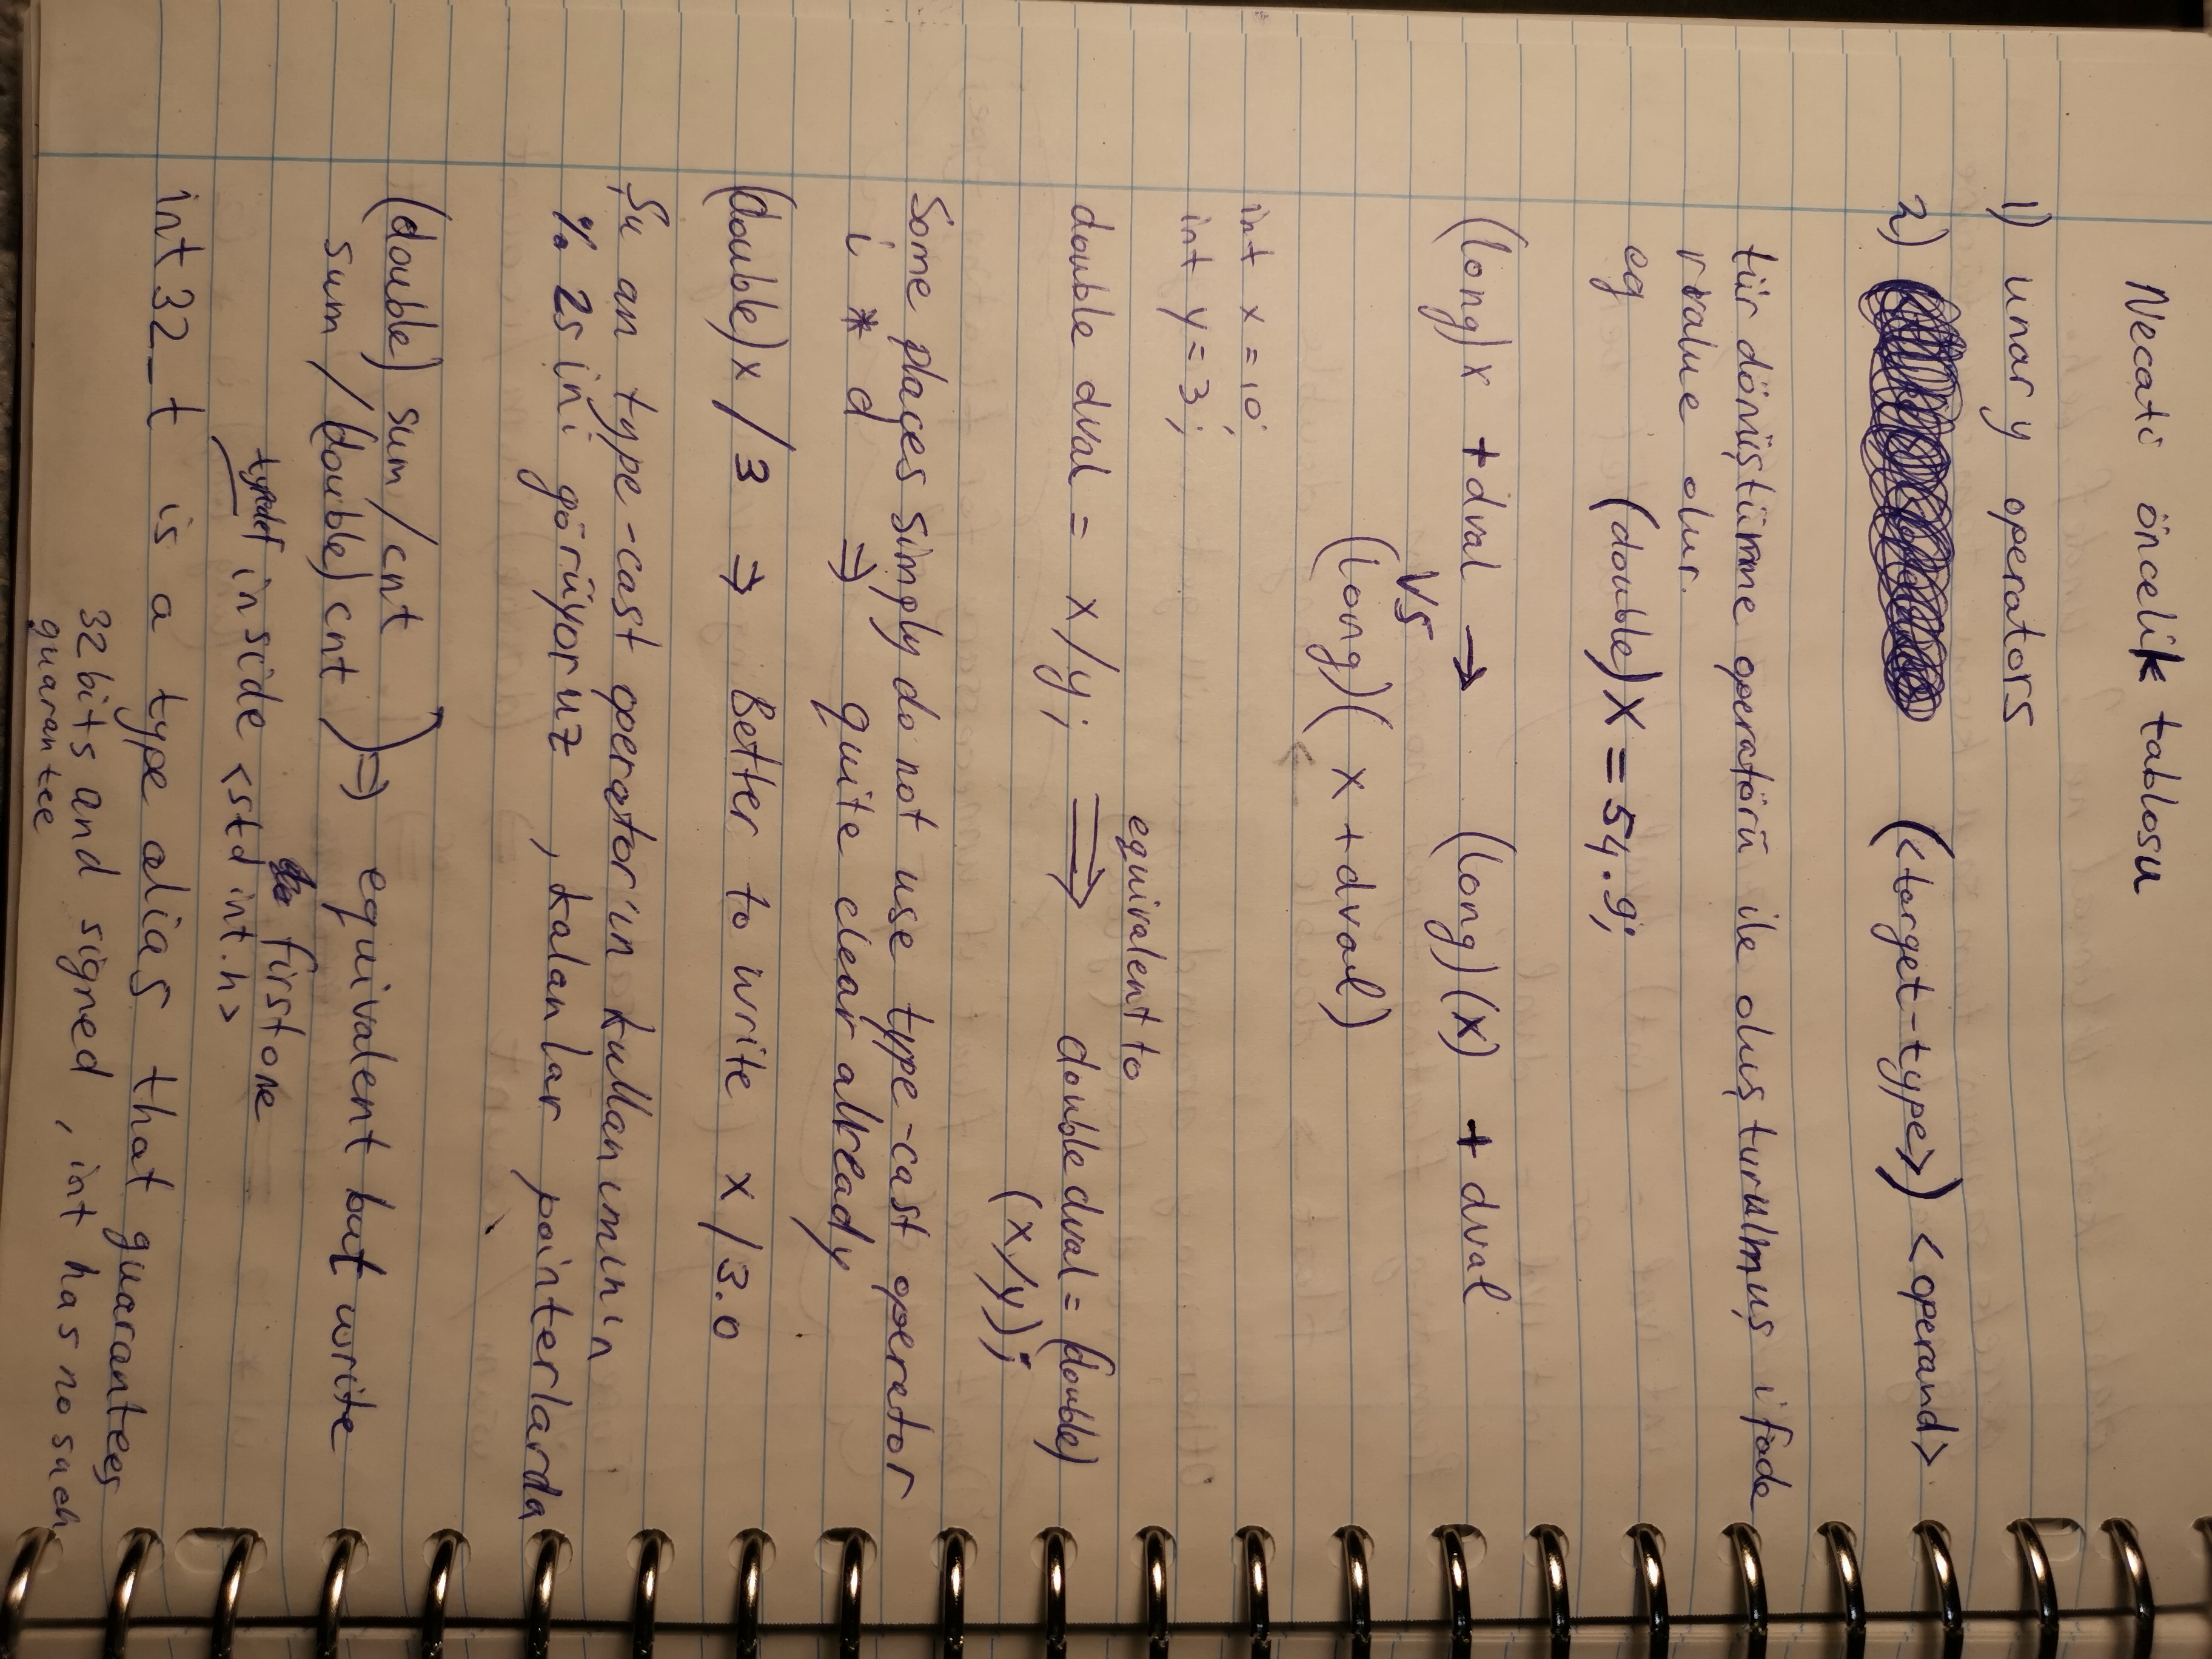 Necati öncelik tablosu
1) unary operators
2) (<target-type>) <operand>
tür dönüştürme operatörü ile oluşturulmuş ifade
rvalue olur.
eg (double)x = 54.9;
(long)x + dval → (long)(x) + dval
vs
(long)( x + dval)
int x = 10;
int y = 3;
equivalent to
double dval = x/y; ⇒ double dval = (double)
(x/y);
Some places simply do not use type-cast operator
i * d ⇒ quite clear already
(double)x / 3 ⇒ Better to write x / 3.0
Şu an type-cast operator'ın kullanımının
% 25ini görüyoruz , kalanlar pointerlarda
(double) sum / cnt
sum / (double) cnt ) ⇒ equivalent but write
first one
typedef inside <stdint.h>
int32_t is a type alias that guarantees
32 bits and signed , int has no such
guarantee